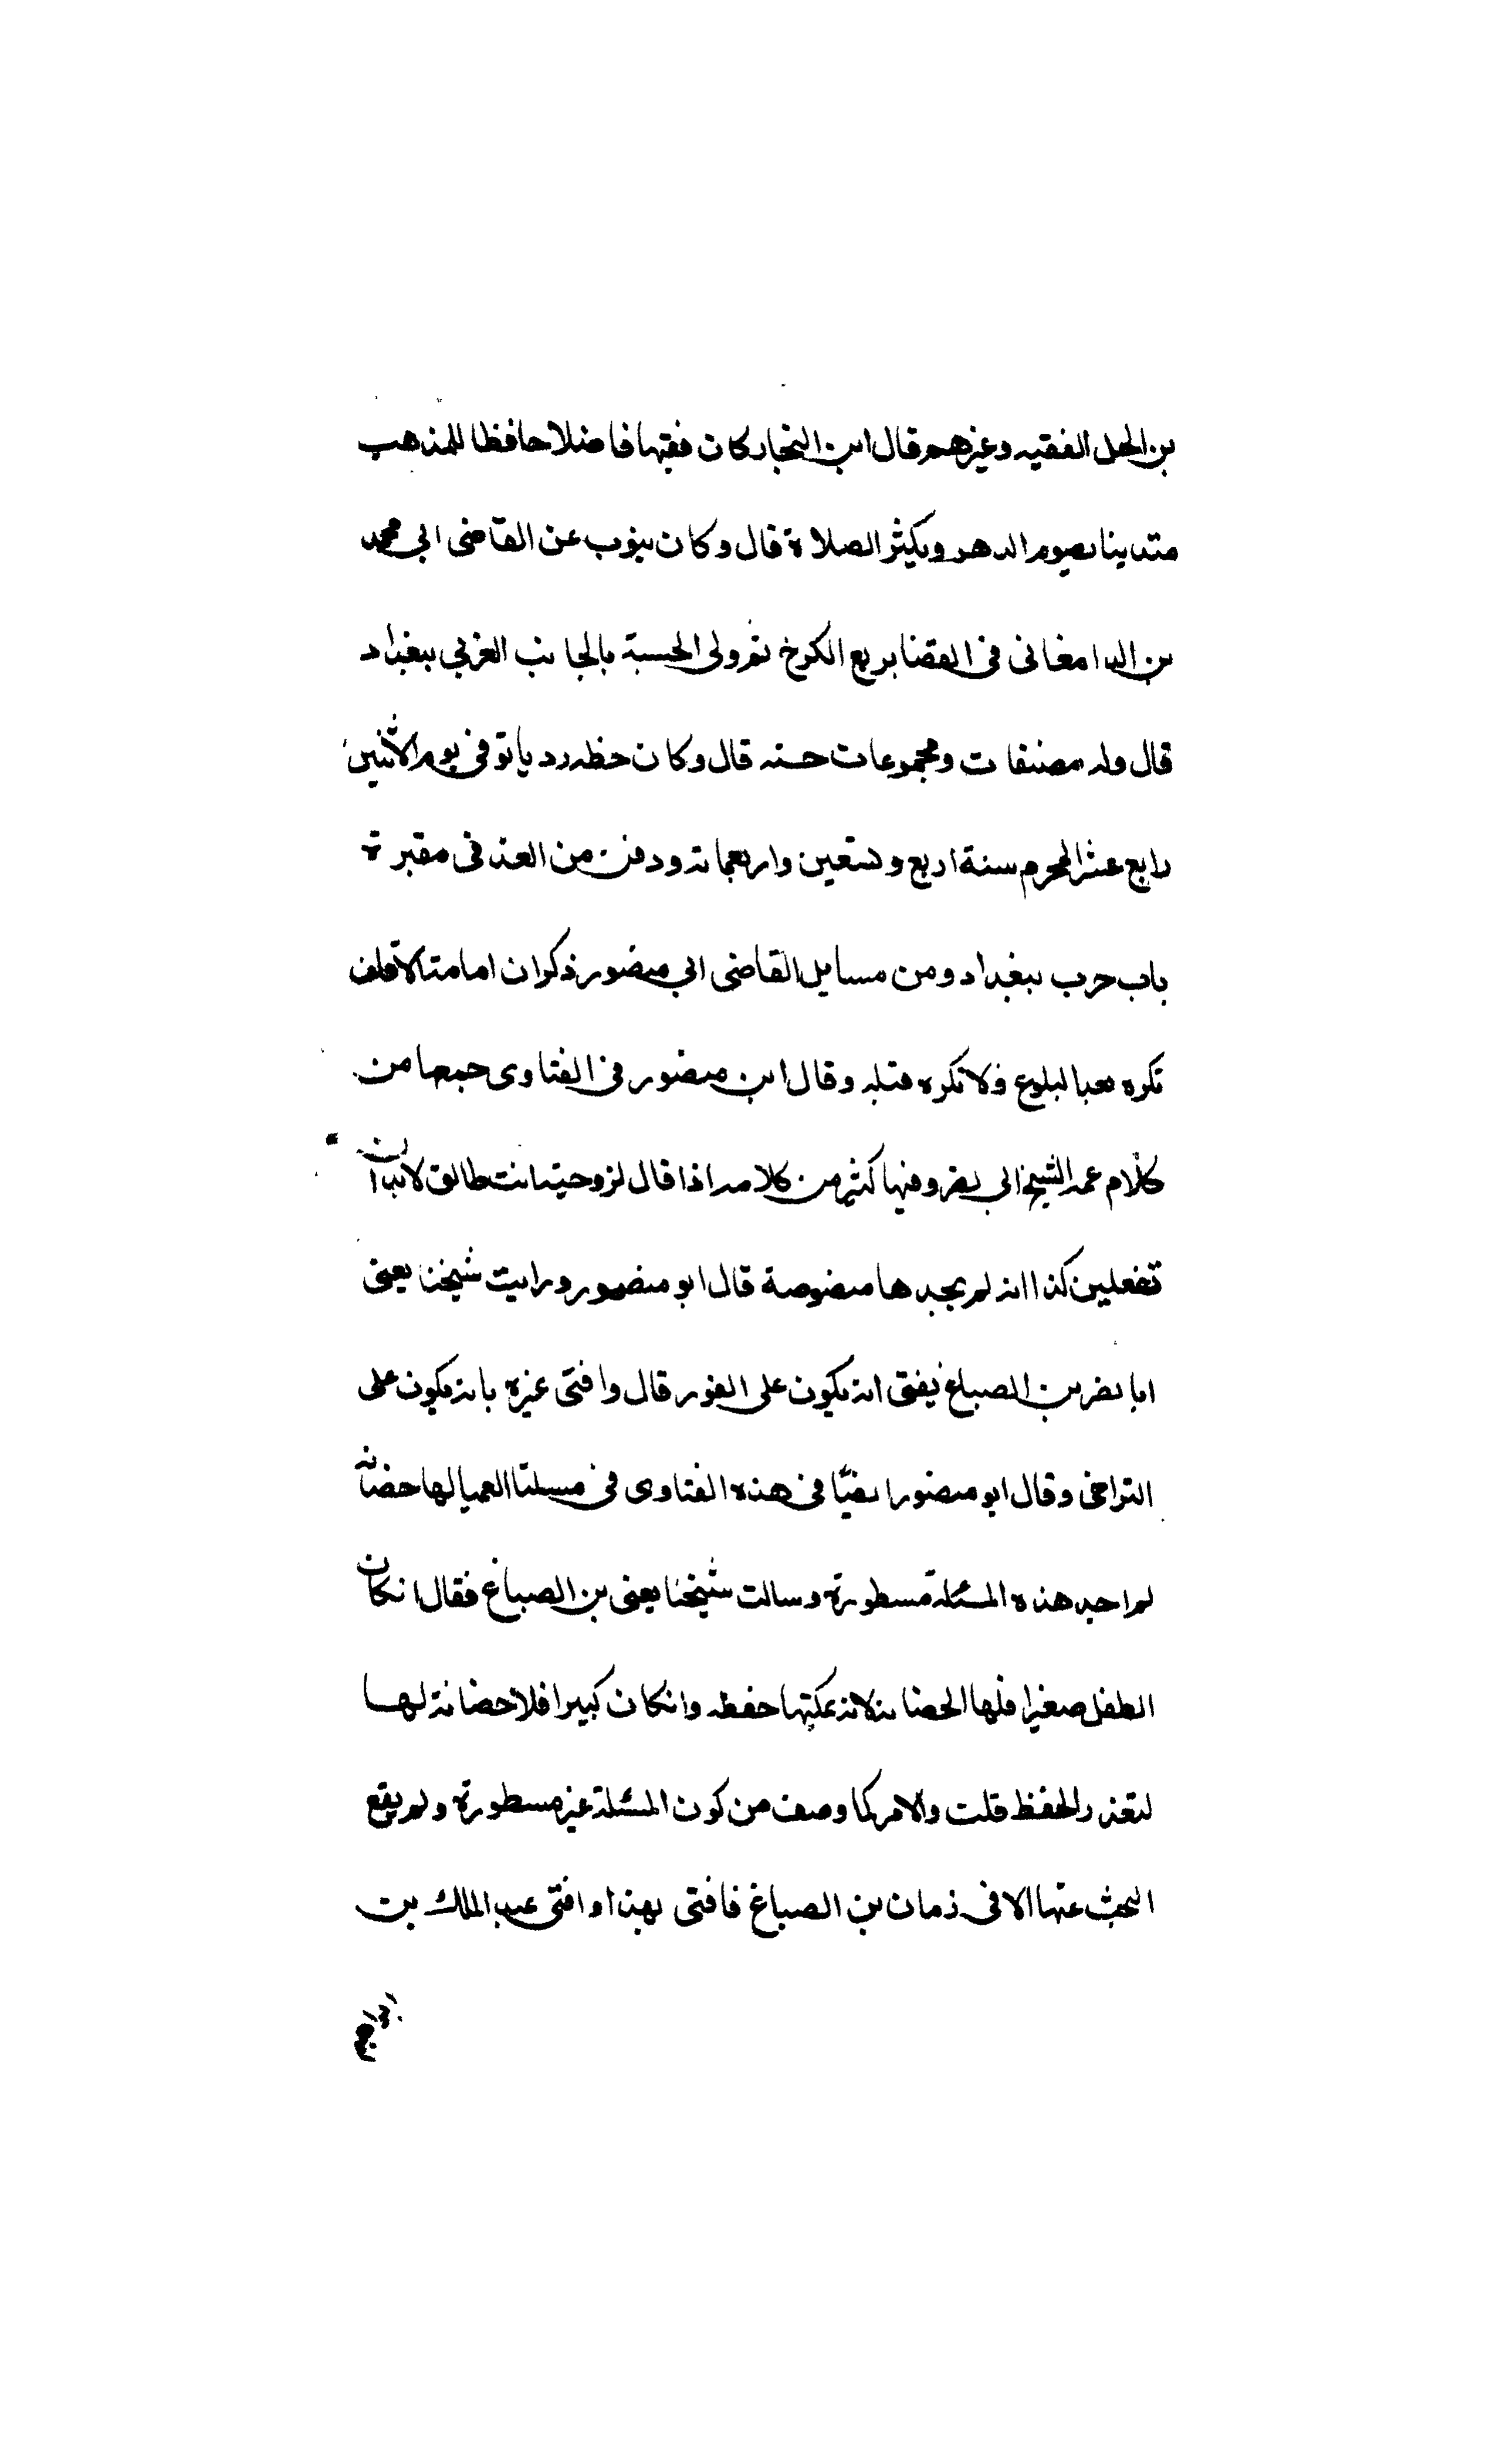 بن الحل الفقيه وغيرهم قال ابن النجار كان فقيها فاضلا حافظا للمذهب
متدينا يصوم الدهر ويكثر الصلاة قال وكان ينوب عن القاضى ابي محمد
بن الدامغانى فى القضا بربع الكرخ ثم ولى الحسبة بالجانب الغربي ببغداد
قال وله مصنفات ومجموعات حسنه قال وكان خطه رديا توفى يوم الاثنين
رابع عشر المحرم سنة اربع وتسعين واربعماته ودفن من الغد فى مقبرة
باب حرب ببغداد ومن مسايل القاضى ابي منصور ذكر ان امامة الاقلف
تكره بعد البلوغ ولا تكره قبله وقال ابن منصور فى الفتاوى جمعها من
كلام عمه الشيخ ابي نصر وفيها كثير من كلامه اذا قال لزوجته انت طالق لا بد ان
تفعلين كذا انه لم يجدها منصوصة قال ابو منصور ورايت شيخنا يعنى
ابا نصر بن الصباغ يفتى انه يكون على الفور قال وافتى غيره بانه يكون على
التراخى وقال ابو منصور ايضا فى هذه الفتاوى فى مسلة العميا لها حضانه
لم اجد هذه المسئلة مسطورة وسالت شيخنا يعنى بن الصباغ فقال ان كان
الطفل صغيرا فلها الحضانة لانه يمكنها حفظه وان كان كبيرا فلا حضانة لها
لتعذر الحفظ قلت والامر كما وصف من كون المسئلة غير مسطورة ولم يقع
البحث عنها الا فى زمان بن الصباغ فافتى بهذا وافتى عبد الملك بن